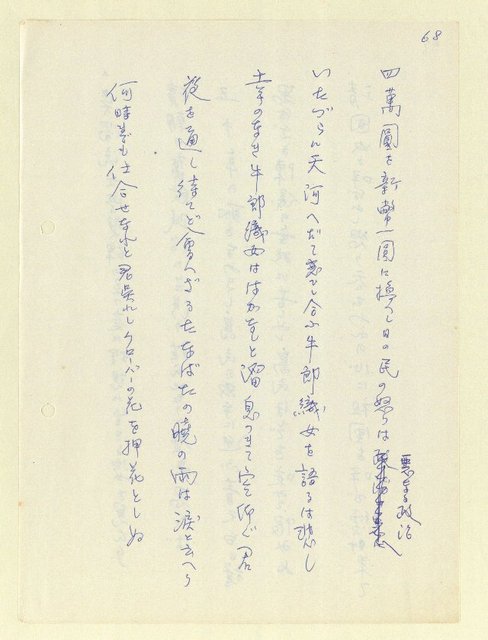 68
四萬圓を新幣一圓に換へし日の民の怒りは
悪き政治
いたづらに天の河へだて恋ひ合ふ牛郎織女を語るは悲し
牛郎織女ははかなしと溜息つきて空仰ぐ君
夜を通し待てど會へざるたなばたの暁の雨は涙と云へり
何時までも仕合せなれと君呉れしクローバーの花を押花としぬ